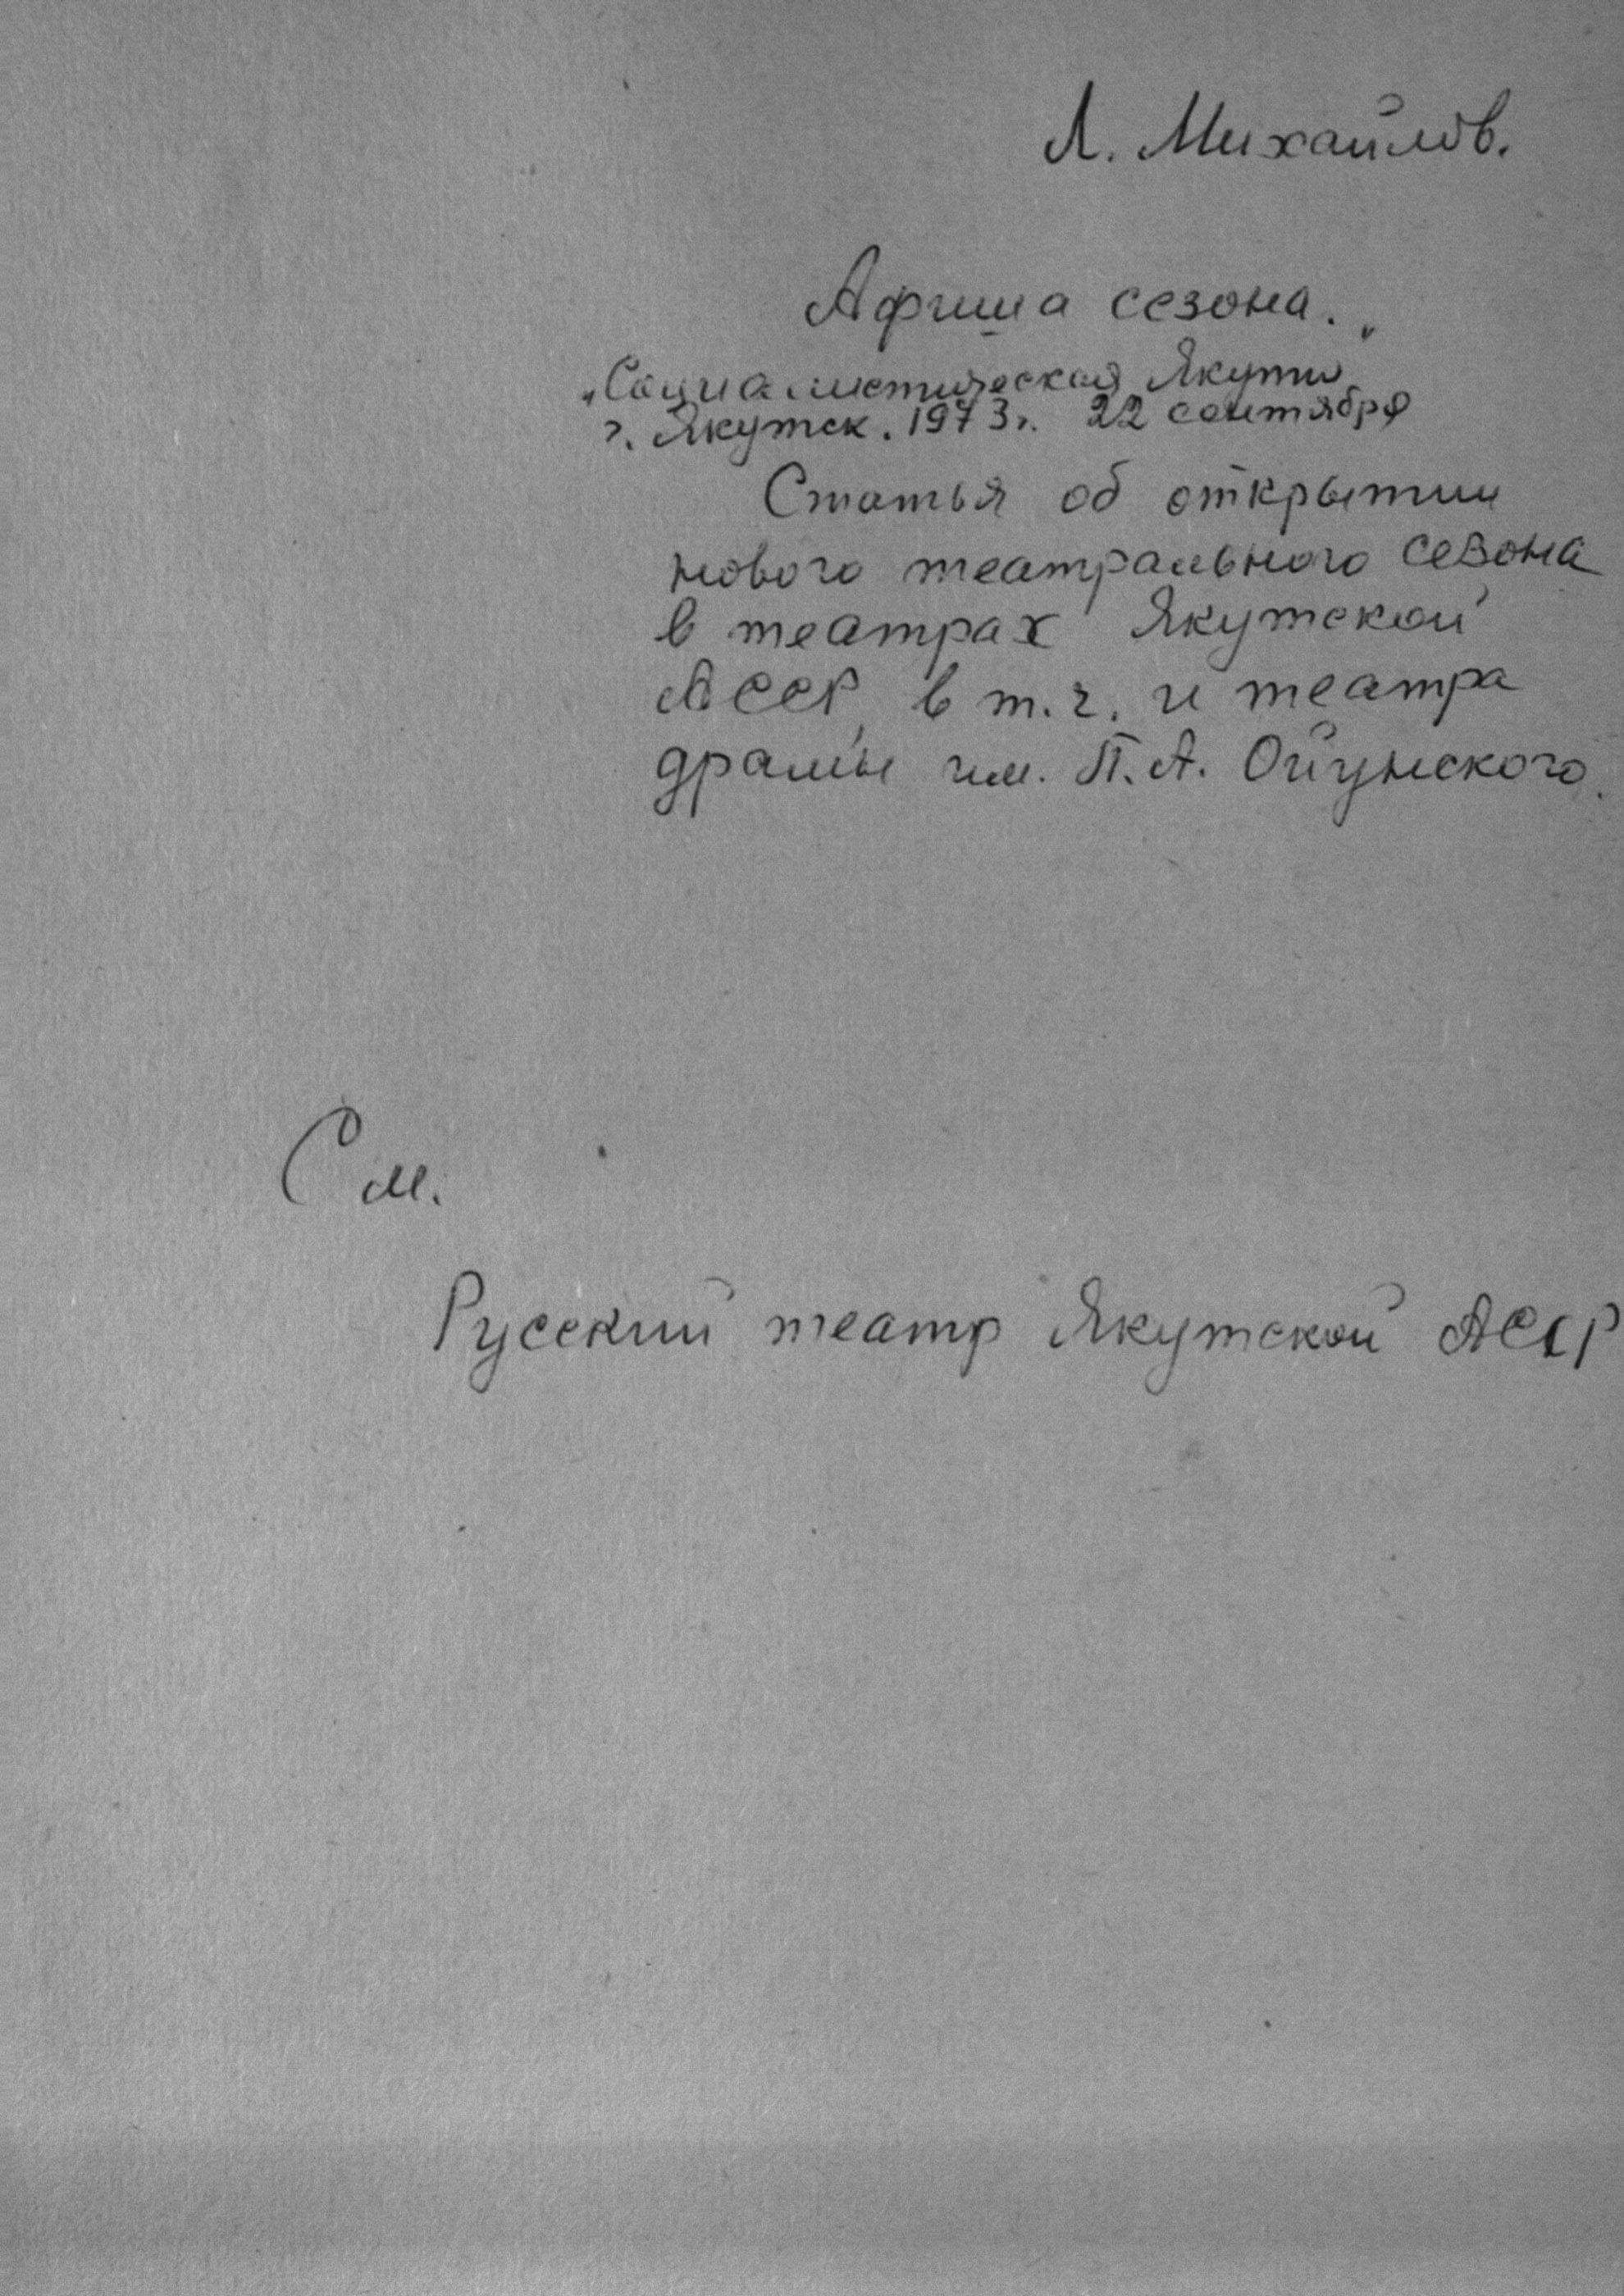 Л. Михайлов.
Афиша сезона.
„Социалистическая Якутия"
г. Якутск. 1973г. 22 сентября
Статья об открытии
нового театрального сезона
в театрах Якутской
АССР, в т.ч. и театра
драмы им. П.А. Ойунского.
См.
Русский театр Якутской АССР